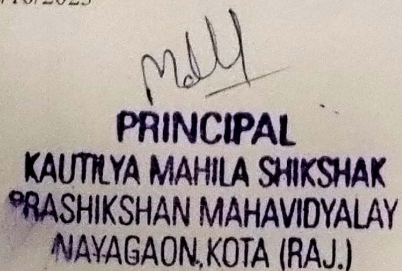 PRINCIPAL
KAUTILYA MAHILA SHIKSHAK
PRASHIKSHAN MAHAVIDYALAY
NAYAGAON, KOTA (RAJ.)